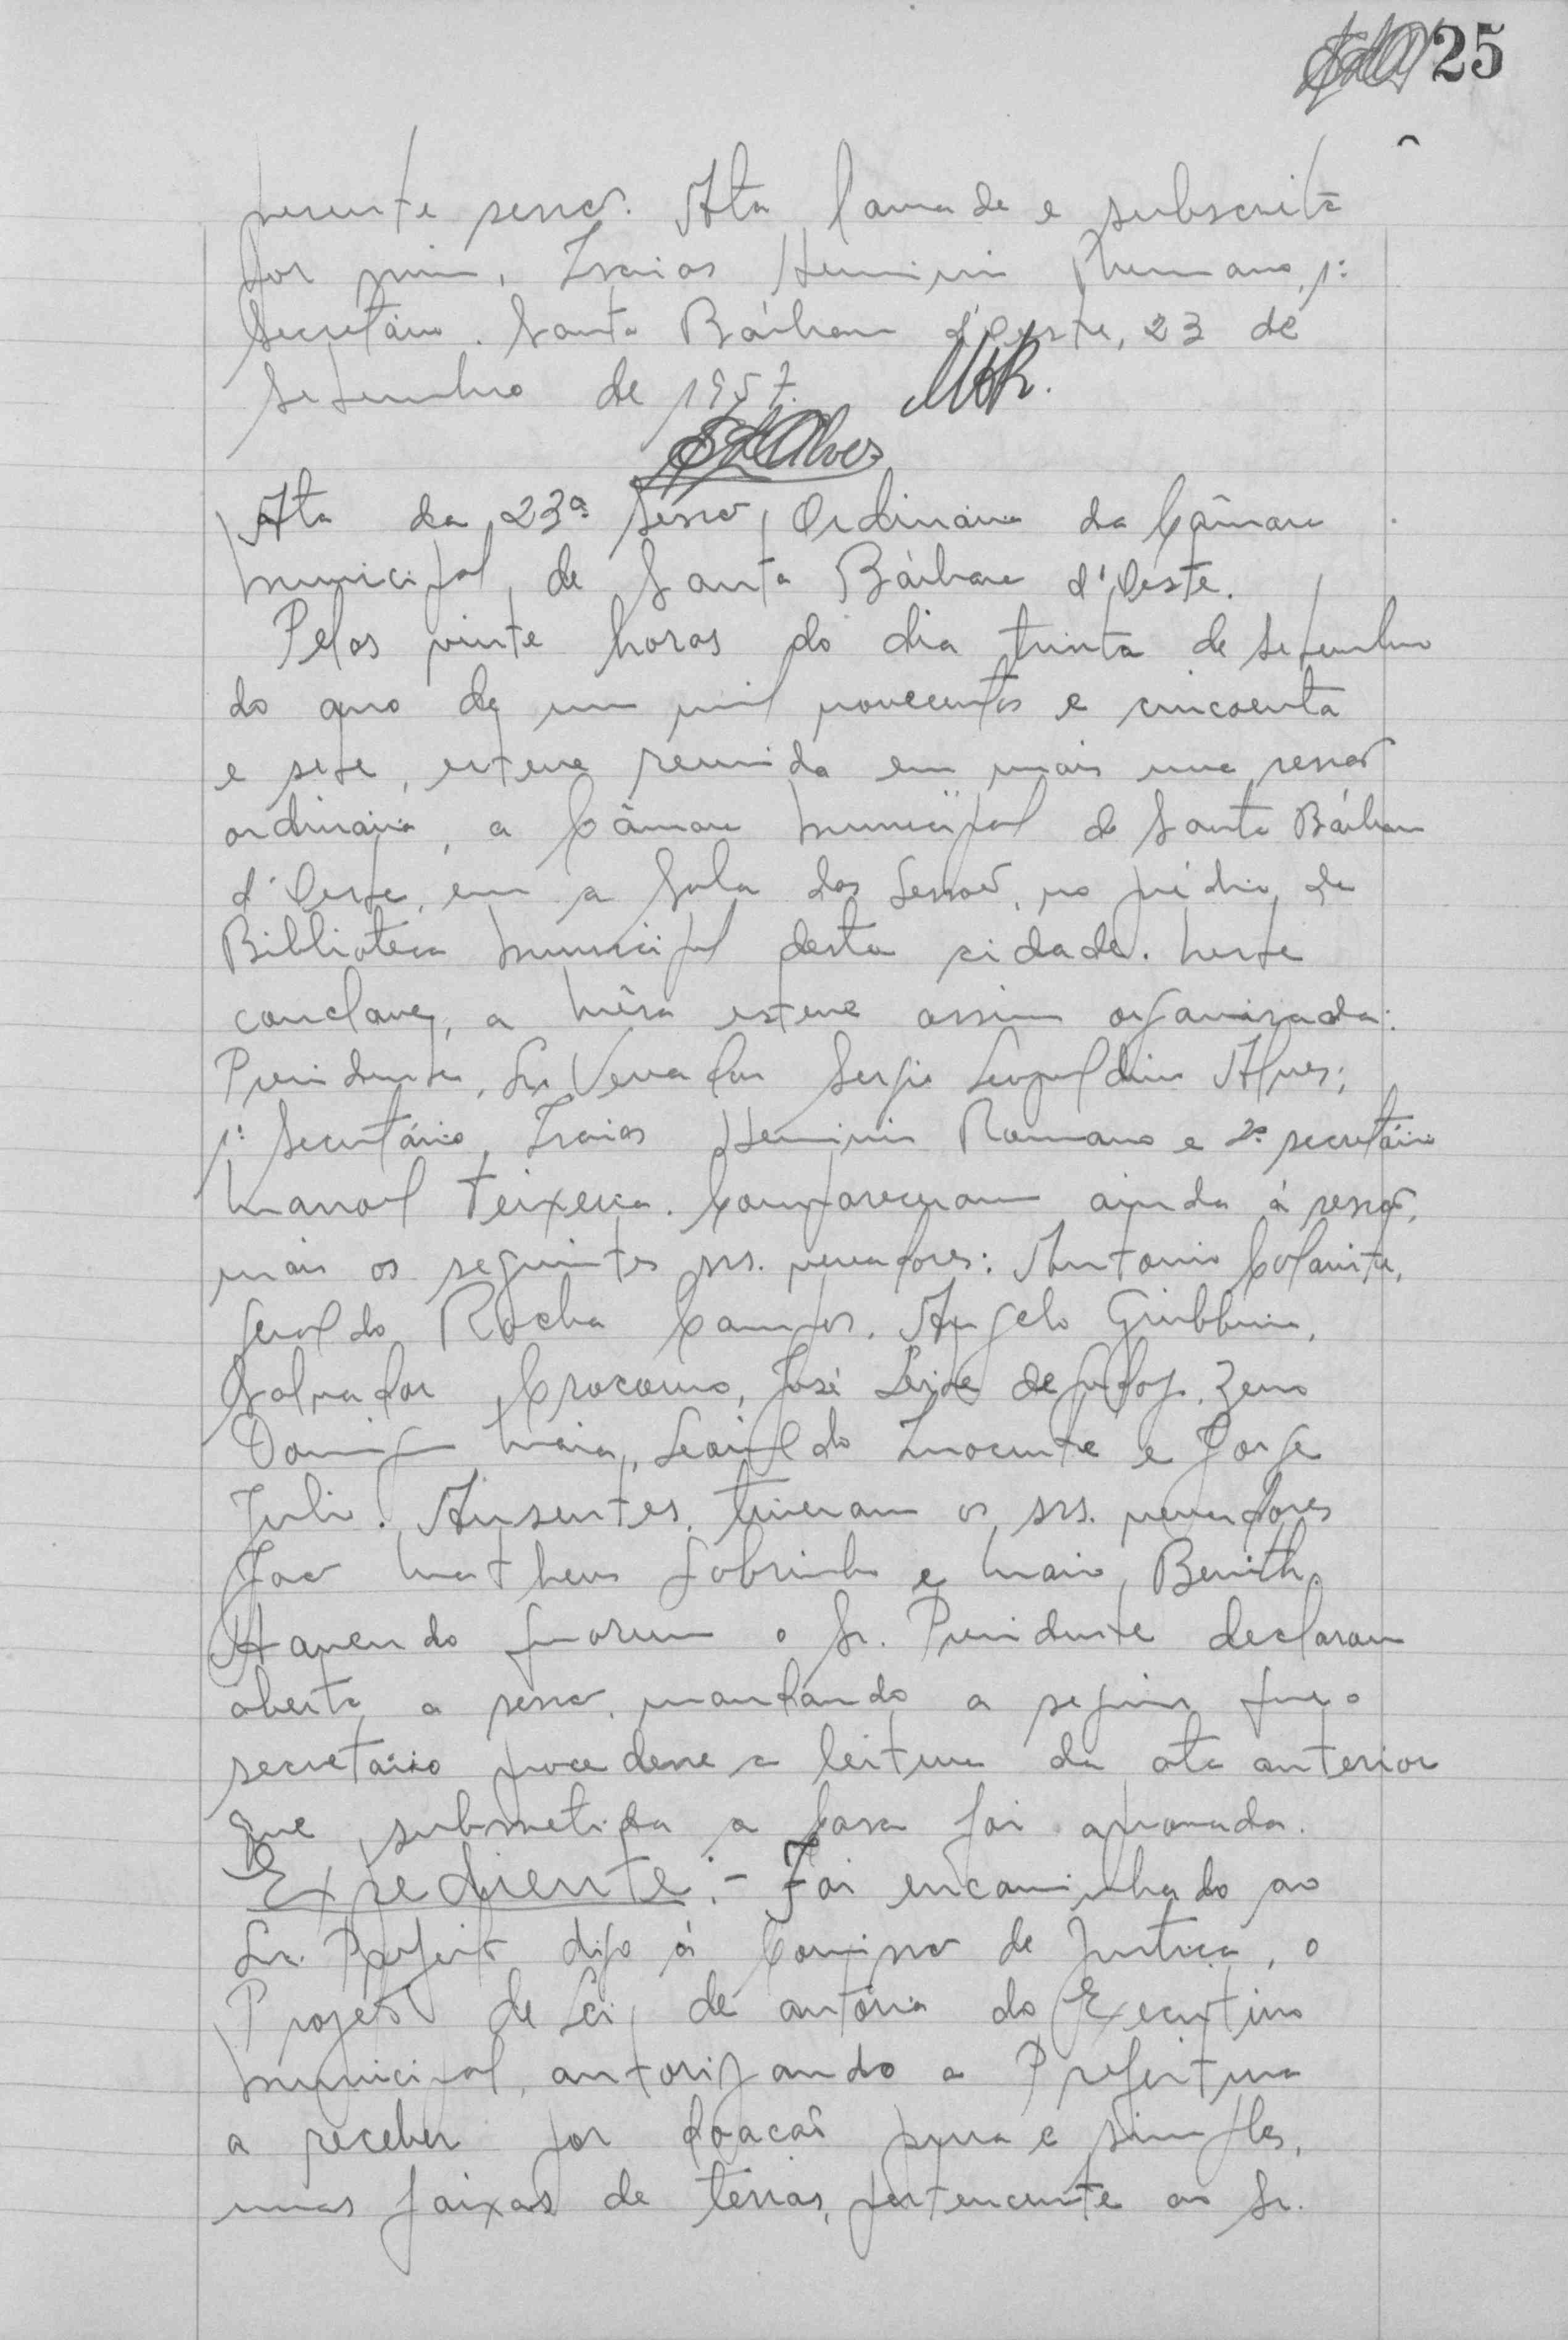 25
presente sessão. Ata lavrada e subscrita
por mim, Isaias Herminio Romano, 1º
Secretário. Santa Bárbara d'Oeste, 23 de
Setembro de 1957.
SLAlves
Ata da 23ª Sessão Ordinária da Câmara
Municipal de Santa Bárbara d'Oeste.
Pelas vinte horas do dia trinta de Setembro
do ano de um mil novecentos e cincoenta
e sete, esteve reunida em mais uma sessão
ordinária, a Câmara Municipal de Santa Bárbara
d'Oeste, em a Sala das Sessões, no prédio da
Biblioteca Municipal desta cidade. Neste
conclave, a Mêsa esteve assim organizada:
Presidente, Sr. Vereador Sergio Leopoldino Alves;
1º Secretário, Isaias Herminio Romano e 2º secretário
Manoel Teixeira. Compareceram ainda à sessão,
mais os seguintes srs. vereadores: Antonio
Geraldo Rocha Campos, Angelo Giubbina,
Salvador Crocomo, José Leite de Godoy, Zeno
Domingos Maia, Leopoldo Inocente e Jorge
Juli. Ausentes, tiveram os srs. vereadores
João Matheus Sobrinho e Mario
Havendo quorum o Sr. Presidente declarou
aberta a sessão, mandando a seguir que o
secretário procedesse a leitura da ata anterior
que submetida a Casa foi aprovada.
Expediente:- Foi encaminhado ao
Sr. Prefeito digo à Comissão de Justiça, o
Projeto de Lei, de autoria do Executivo
Municipal, autorizando a Prefeitura
a receber por doacão pura e simples,
umas faixas de terras, pertencente ao Sr.